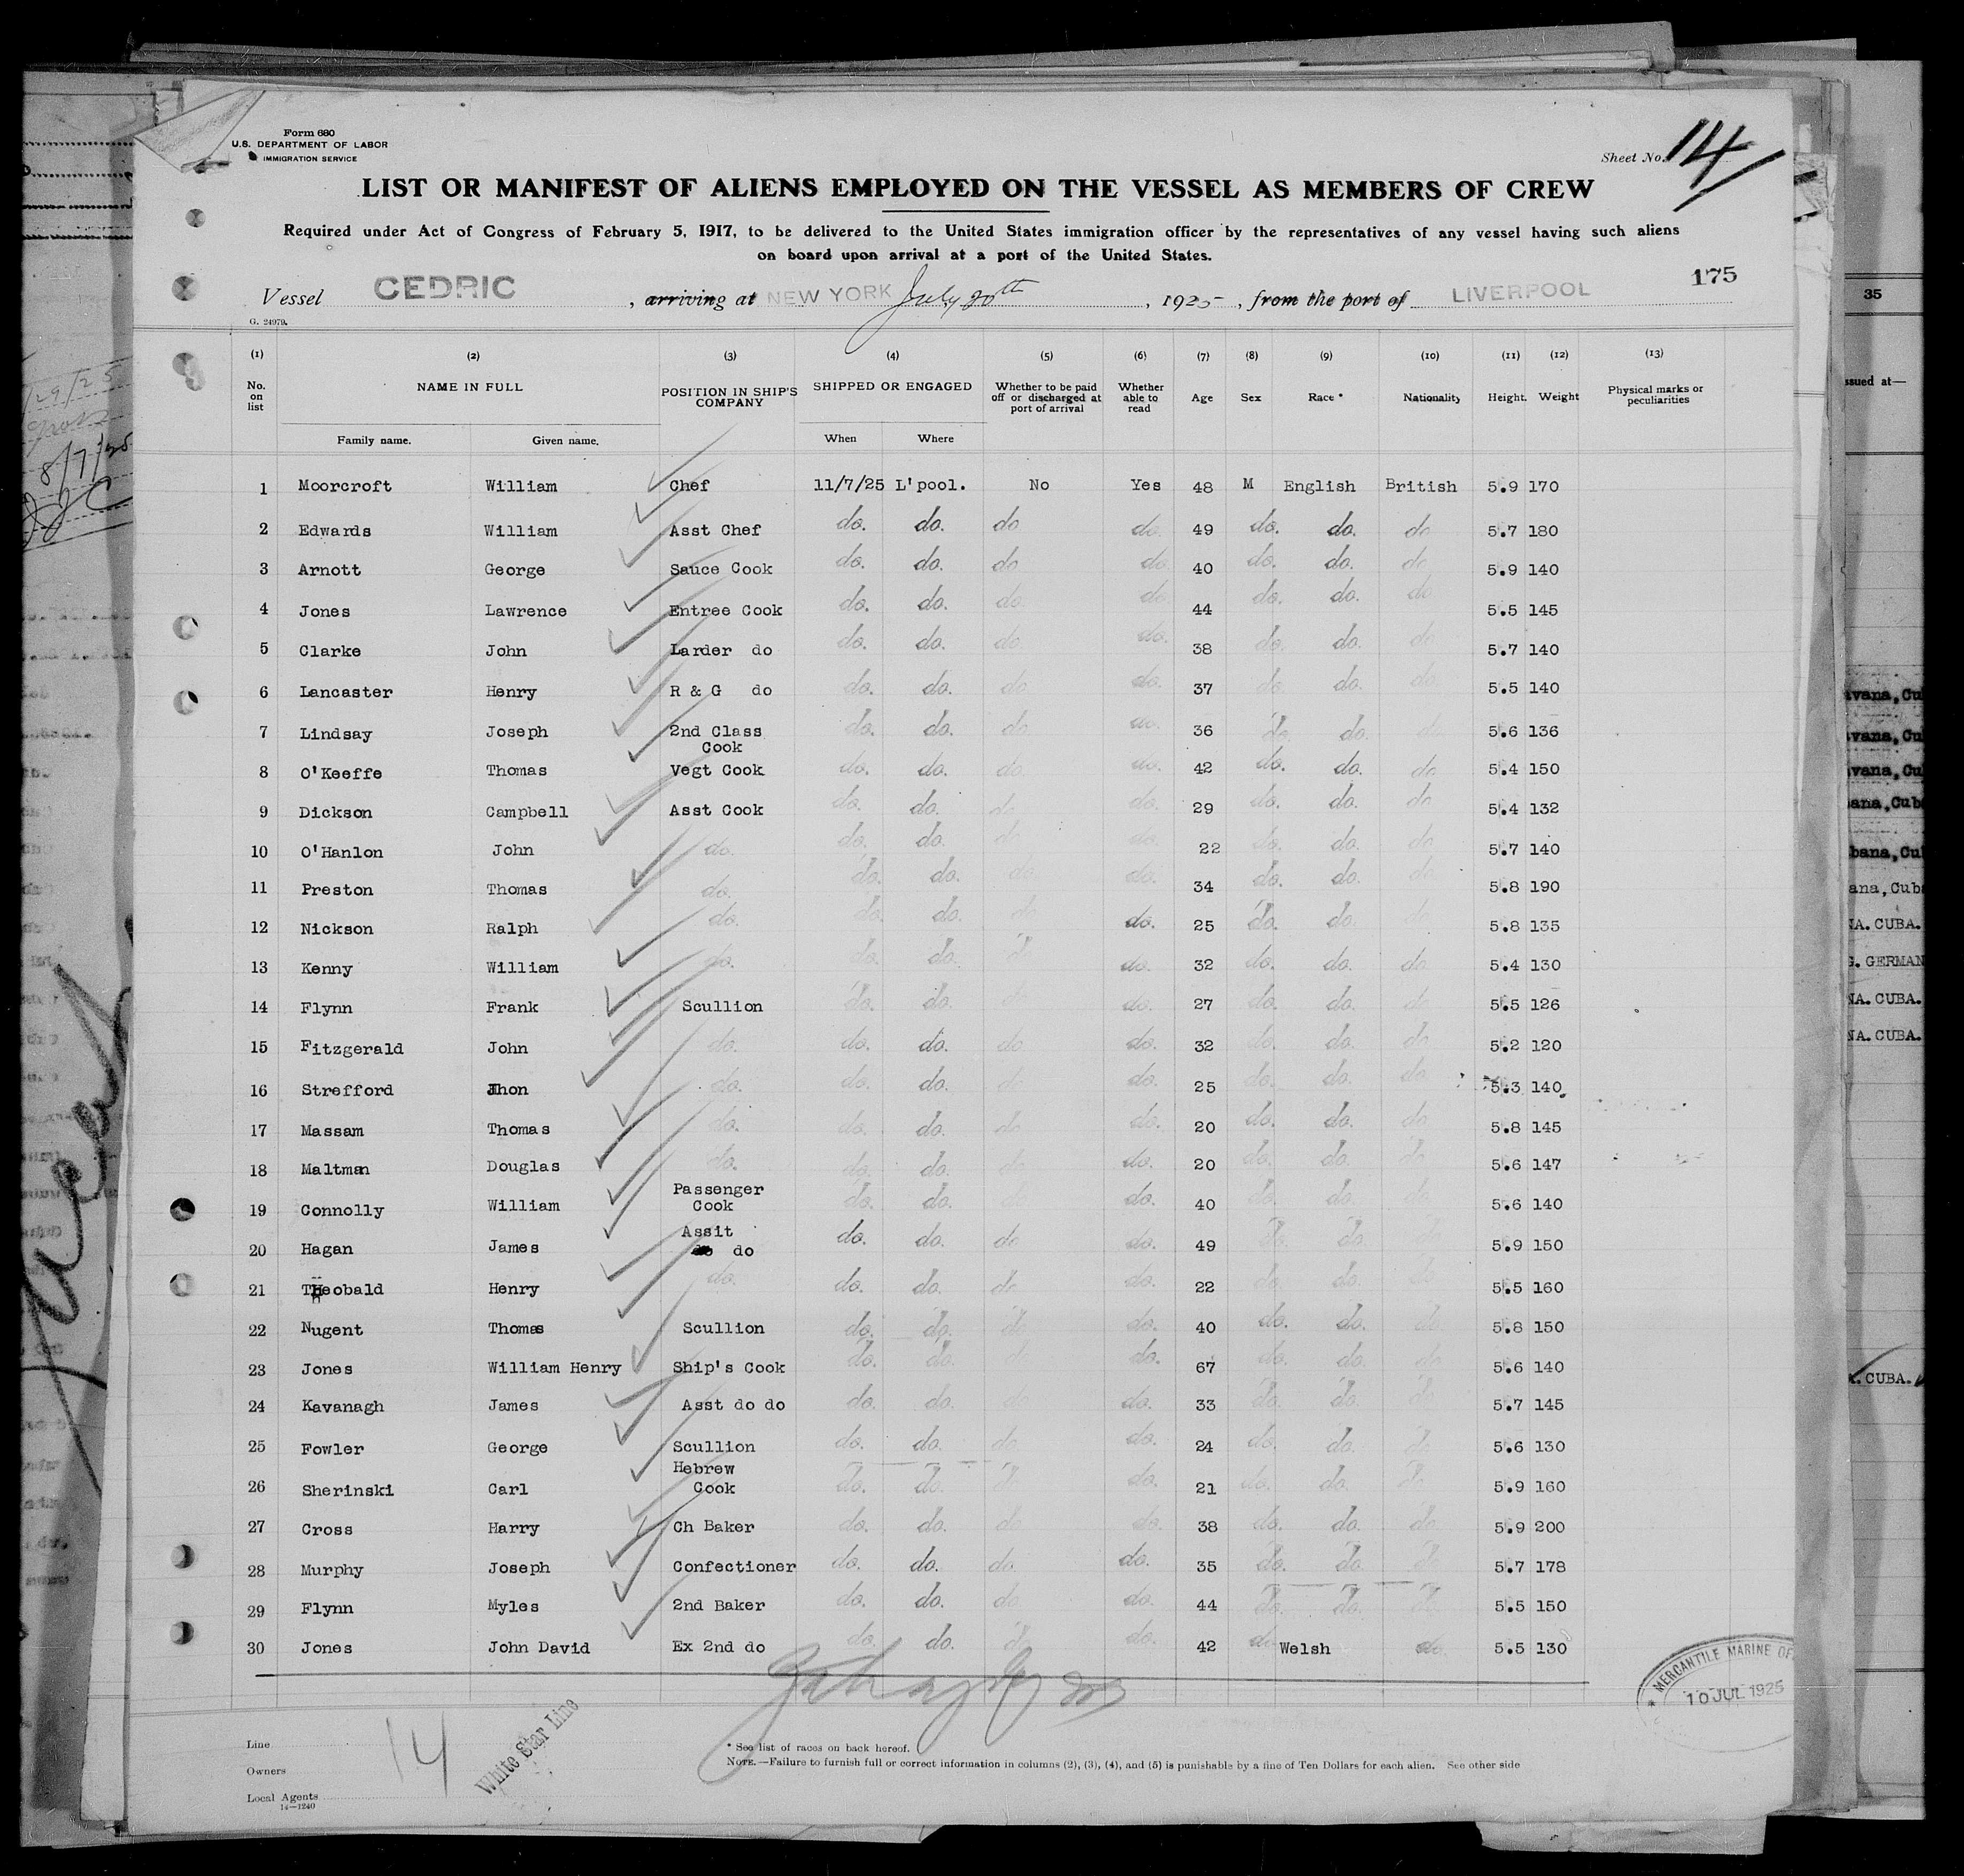 Form 680
U.S. DEPARTMENT OF LABOR
IMMIGRATION SERVICE
Sheet No. 14
LIST OR MANIFEST OF ALIENS EMPLOYED ON THE VESSEL AS MEMBERS OF CREW
Required under Act of Congress of February 5, 1917, to be delivered to the United States immigration officer by the representatives of any vessel having such aliens
on board upon arrival at a port of the United States.
175
Vessel CEDRIC, arriving at NEW YORK July 20th, 1925, from the port of LIVERPOOL
G. 24979.
(1) (2) (3) (4) (5) (6) (7) (8) (9) (10) (11) (12) (13)
No. on list NAME IN FULL POSITION IN SHIP'S COMPANY SHIPPED OR ENGAGED Whether to be paid off or discharged at port of arrival Whether able to read Age Sex Race * Nationality Height. Weight Physical marks or peculiarities
Family name. Given name. When Where
1 Moorcroft William Chef 11/7/25 L'pool. No Yes 48 M English British 5.9 170
2 Edwards William Asst Chef do. do. do do. 49 do. do. do 5.7 180
3 Arnott George Sauce Cook do. do. do do. 40 do. do. do 5.9 140
4 Jones Lawrence Entree Cook do. do. do. do. 44 do. do. do 5.5 145
5 Clarke John Larder do do. do. do. do. 38 do. do. do 5.7 140
6 Lancaster Henry R & G do do. do. do. do. 37 do. do. do 5.5 140
7 Lindsay Joseph 2nd Class Cook do. do. do. do. 36 do. do. do 5.6 136
8 O'Keeffe Thomas Vegt Cook do. do. do. do. 42 do. do. do 5.4 150
9 Dickson Campbell Asst Cook do. do. do do. 29 do. do. do 5.4 132
10 O'Hanlon John do. do. do. do do. 22 do. do. do 5.7 140
11 Preston Thomas do. do. do. do. do. 34 do. do. do 5.8 190
12 Nickson Ralph do. do. do. do. do. 25 do. do. do 5.8 135
13 Kenny William do. do. do. do. do. 32 do. do. do. 5.4 130
14 Flynn Frank Scullion do. do. do do. 27 do. do. do 5.5 126
15 Fitzgerald John do. do. do. do do. 32 do. do. do 5.2 120
16 Strefford Jhon do. do. do. do do. 25 do. do. do 5.3 140
17 Massam Thomas do. do. do. do do. 20 do. do. do 5.8 145
18 Maltman Douglas do. do. do. do do. 20 do. do. do 5.6 147
19 Connolly William Passenger Cook do. do. do do. 40 do. do. do 5.6 140
20 Hagan James Assit do do. do. do do. 49 do. do. do 5.9 150
21 THeobald Henry do. do. do. do do. 22 do. do. do 5.5 160
22 Nugent Thomas Scullion do. do. do do. 40 do. do. do 5.8 150
23 Jones William Henry Ship's Cook do. do. do do. 67 do. do. do 5.6 140
24 Kavanagh James Asst do do do. do. do do. 33 do. do. do 5.7 145
25 Fowler George Scullion do. do. do do. 24 do. do. do 5.6 130
26 Sherinski Carl Hebrew Cook do. do. do do. 21 do. do. do 5.9 160
27 Cross Harry Ch Baker do. do. do. do. 38 do. do. do. 5.9 200
28 Murphy Joseph Confectioner do. do. do. do. 35 do. do. do 5.7 178
29 Flynn Myles 2nd Baker do. do. do. do. 44 do. do. do 5.5 150
30 Jones John David Ex 2nd do do. do. do do. 42 do Welsh do. 5.5 130
MERCANTILE MARINE OF
10 JUL 1925
14
White Star Line
Line
Owners
Local Agents
14—1240
* See list of races on back hereof.
NOTE.—Failure to furnish full or correct information in columns (2), (3), (4), and (5) is punishable by a fine of Ten Dollars for each alien. See other side
35
ssued at—
vana, Cu
vana, Cu
vana, Cu
ana, Cub
bana, Cu
ana, Cub
NA. CUBA.
G. GERMAN
NA. CUBA.
NA. CUBA.
. CUBA.
8/7/25